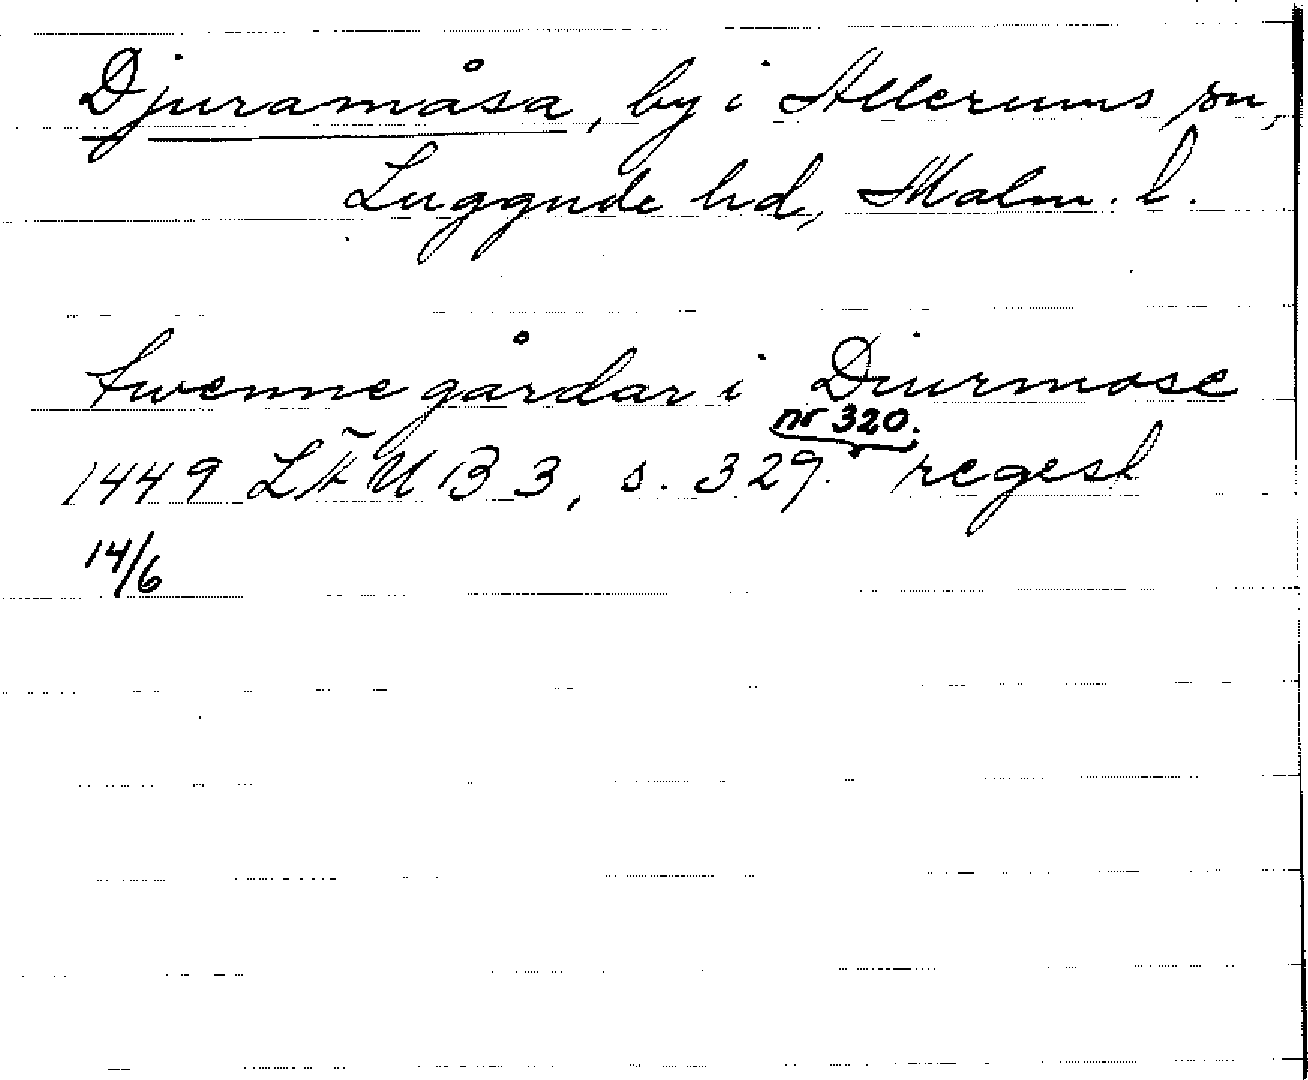 Djuramåsa, by i Allerums sn,
Luggude hd, Malm. l.
Twenne gårdar i Diurmose
nr 320.
1449 LÄUB 3, s. 329. regest
14/6